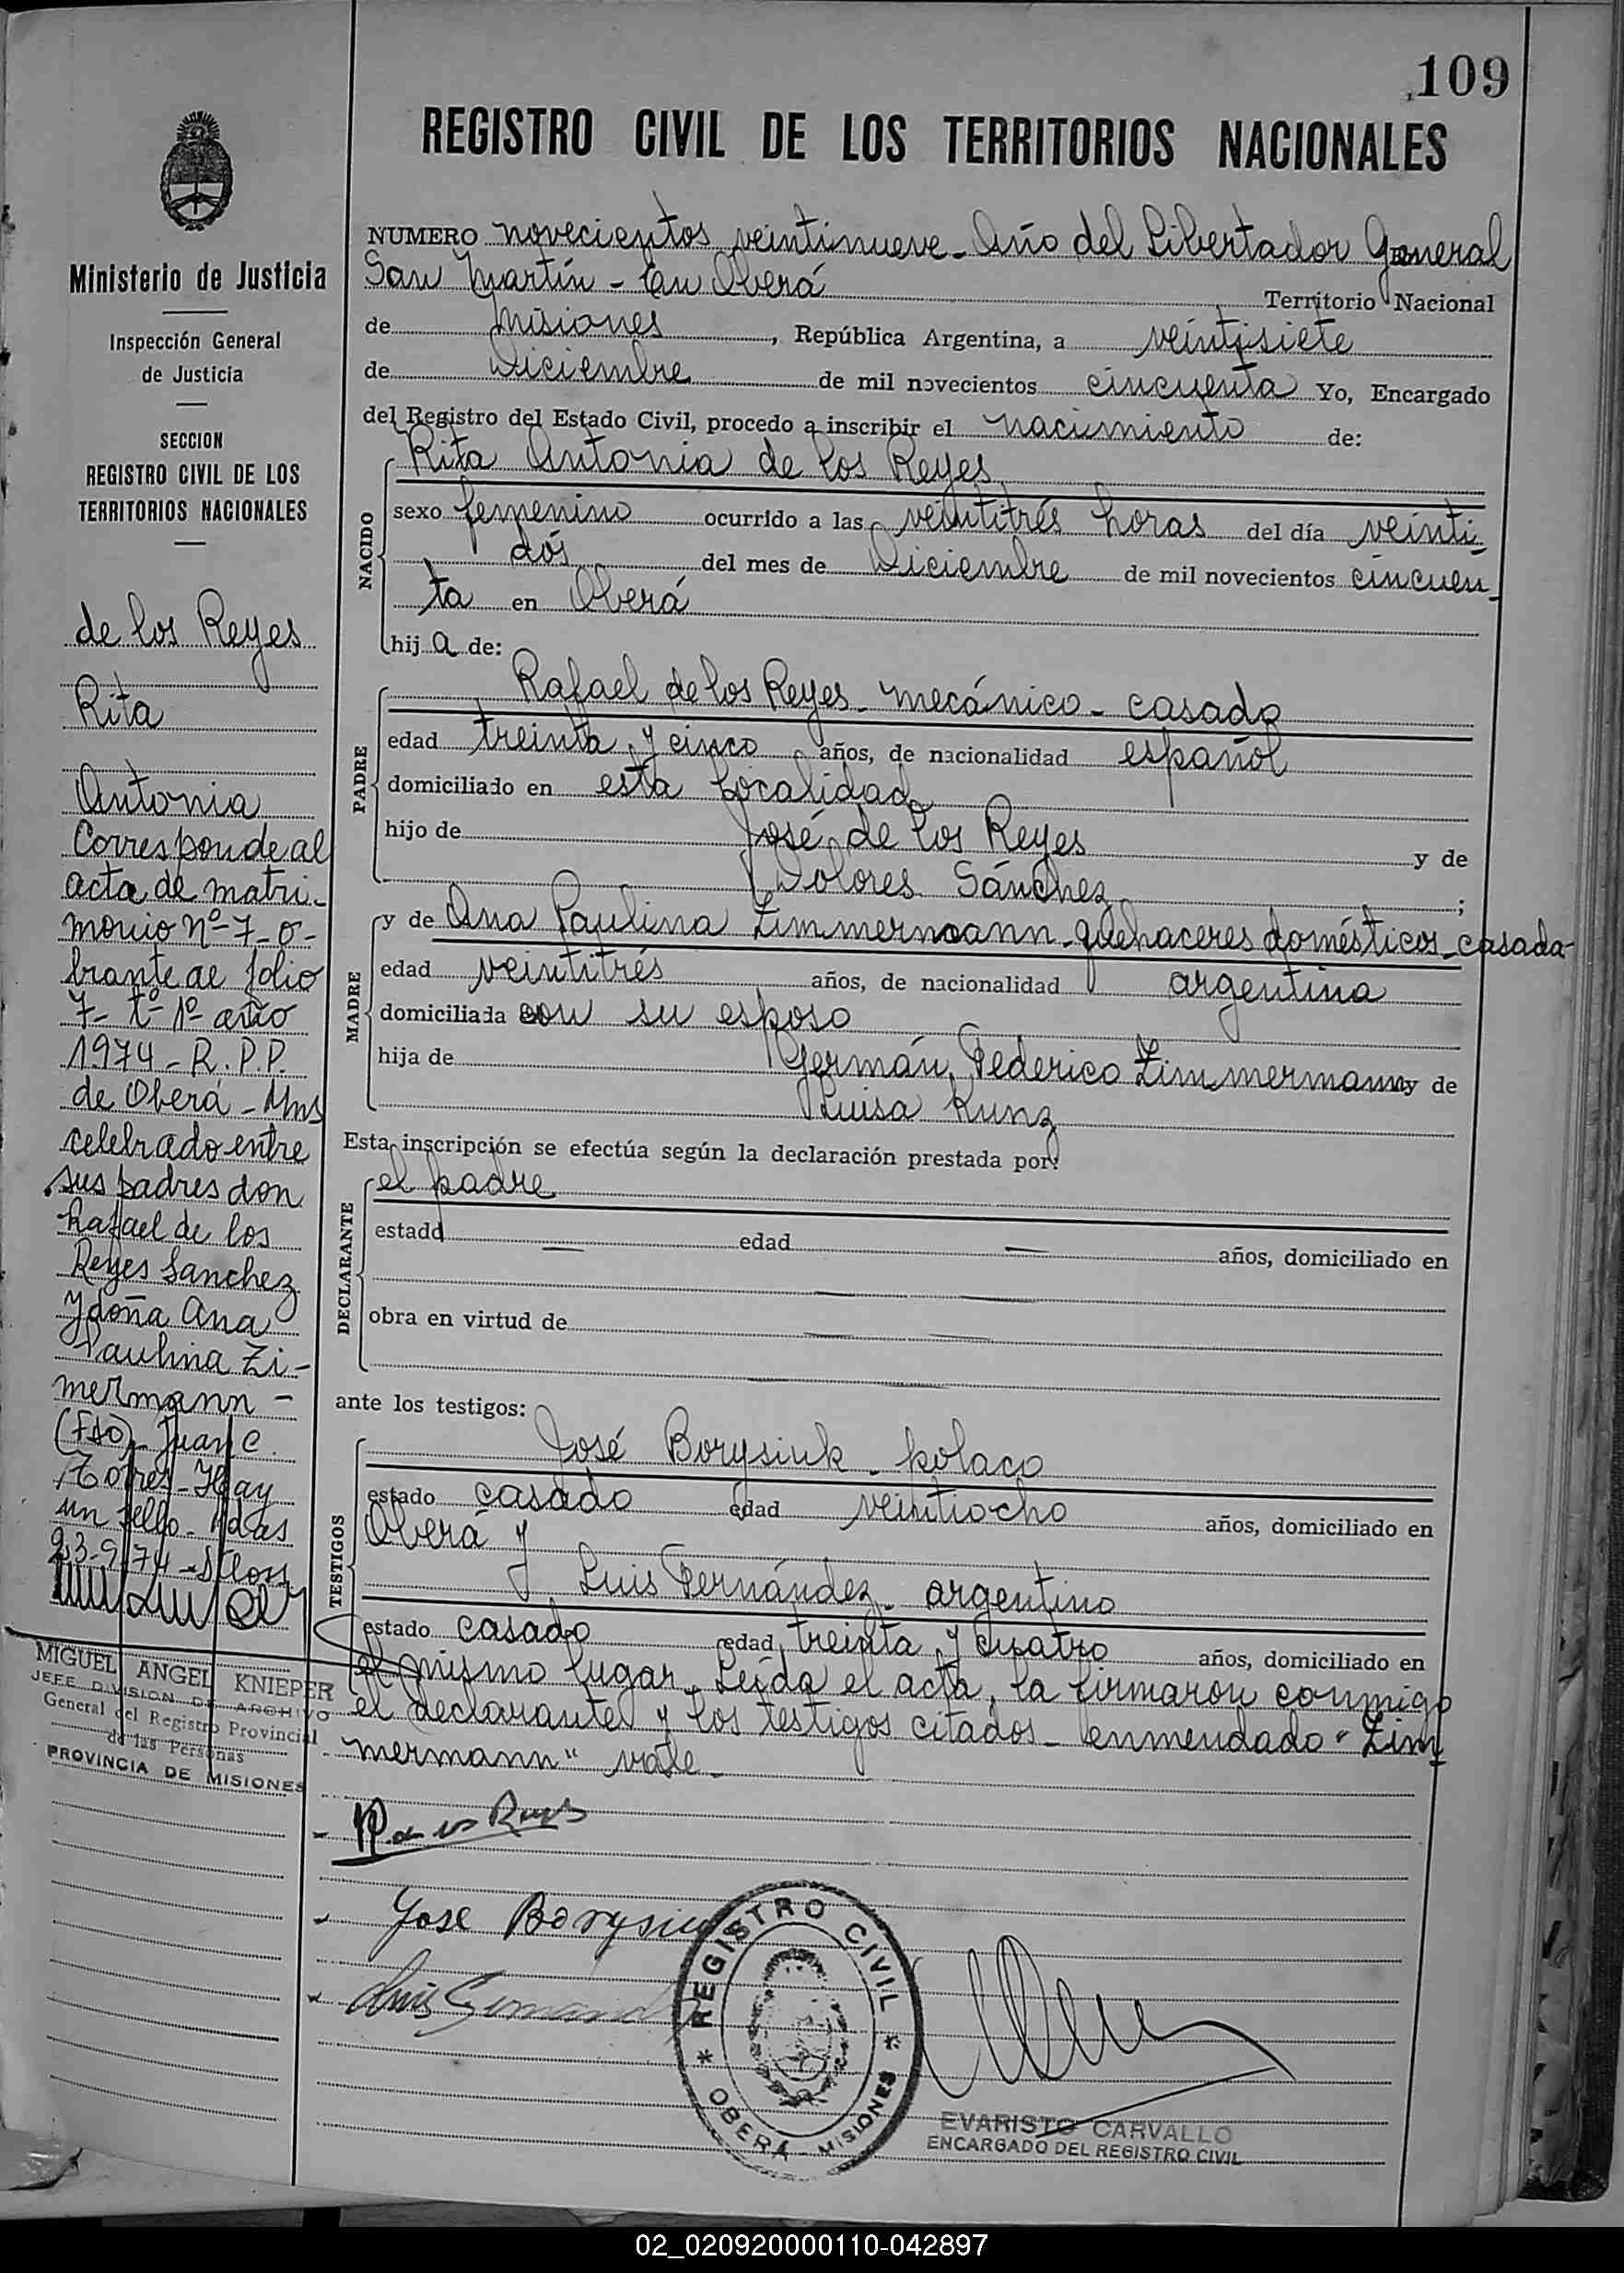 109
REGISTRO CIVIL DE LOS TERRITORIOS NACIONALES
Ministerio de Justicia
Inspección General
de Justicia
SECCION
REGISTRO CIVIL DE LOS
TERRITORIOS NACIONALES
de los Reyes
Rita
Antonia
Corresponde al
acta de matri-
monio nº 7- o-
brante al folio
7- tº 1º año
1974 - R. P.P.
de Oberá - Mns
celebrado entre
sus padres don
Rafael de los
Reyes Sanchez
y doña Ana
Paulina Zi-
mermann -
(Fdo) Juan C.
Torres - Hay
un sello - Pdas
23-9-74 -
MIGUEL ANGEL KNIEPER
JEFE DIVISION DE ARCHIVO
General del Registro Provincial
de las Personas
PROVINCIA DE MISIONES
NUMERO novecientos veintinueve - Año del Libertador General
San Martín - En Oberá Territorio Nacional
de Misiones, República Argentina, a veintisiete
de Diciembre de mil novecientos cincuenta Yo, Encargado
del Registro del Estado Civil, procedo a inscribir el nacimiento de:
NACIDO
Rita Antonia de los Reyes
sexo femenino ocurrido a las veintitrés horas del día veinti-
dós del mes de Diciembre de mil novecientos cincuen-
ta en Oberá
hij a de:
PADRE
Rafael de los Reyes - mecánico - casado
edad treinta y cinco años, de nacionalidad español
domiciliado en esta localidad
hijo de José de los Reyes y de
Dolores Sánchez ;
MADRE
y de Ana Paulina Zimmermann - quehaceres domésticos - casada -
edad veintitrés años, de nacionalidad argentina
domiciliada con su esposo
hija de Germán Federico Zimmermann y de
Luisa Kunz
Esta inscripción se efectúa según la declaración prestada por:
DECLARANTE
el padre
estado — edad — años, domiciliado en
obra en virtud de
ante los testigos:
TESTIGOS
José Borysiuk - polaco
estado casado edad veintiocho años, domiciliado en
Oberá y
Luis Fernández - argentino
estado casado edad treinta y cuatro años, domiciliado en
el mismo lugar - Leída el acta, la firmaron conmigo
el declarante y los testigos citados - enmendado "Zim
mermann" vale -
R. de los Reyes
Jose Borysiuk
Luis Fernandez
REGISTRO CIVIL
* OBERÁ - MISIONES *
EVARISTO CARVALLO
ENCARGADO DEL REGISTRO CIVIL
02_020920000110-042897